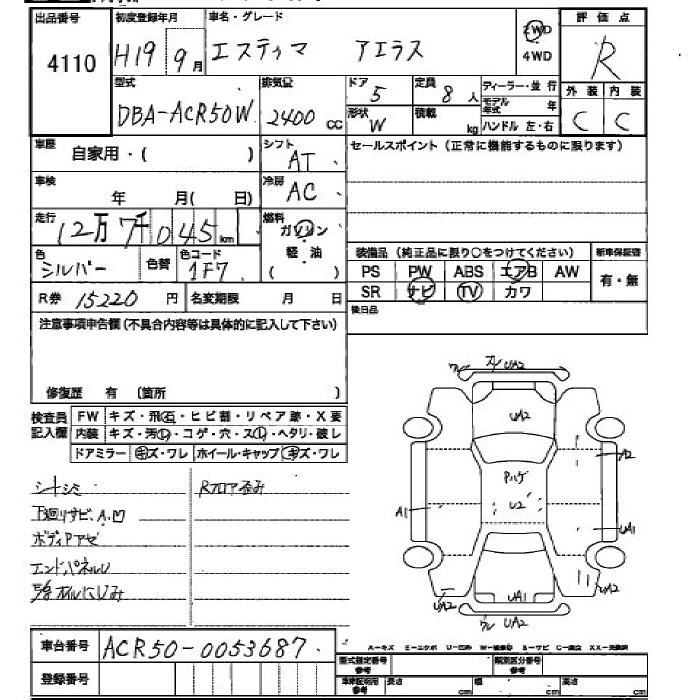 出品番号 初度登録年月 車名・グレード 評価点
4110 H19 9月 エスティマ アエラス 2WD 4WD R
型式 排気量 ドア 定員 ディーラー・並行 外装 内装
DBA-ACR50W 2400 cc 5 8人 モデル年式 年 C C
形状 W 積載 kg ハンドル 左・右
車歴 自家用・( ) シフト AT セールスポイント(正常に機能するものに限ります)
車検 年 月( 日) 冷房 AC
走行 12万7千045km 燃料 ガソリン 軽油 ( )
色 シルバー 色替 色コード 1F7
装備品(純正品に限り○をつけてください) 新車保証書
PS PW ABS エアB AW 有・無
SR ナビ TV カワ
R券 15220円 名変期限 月 日 後日品
注意事項申告欄(不具合内容等は具体的に記入して下さい)
修復歴 有 (箇所 )
検査員記入欄 FW キズ・飛石・ヒビ割・リペア跡・X要
内装 キズ・汚レ・コゲ・穴・スレ・ヘタリ・破レ
ドアミラー キズ・ワレ ホイール・キャップ キズ・ワレ
シートシミ Rフロア歪み
下廻りサビ、A.凹
ボディPアセ
エンドパネルU
オイルにじみ
ワレ ガリ UA2
UA2
A2
Pハゲ
U2
A1
UA1
UA2
UA1
UA2
ワレ UA2
車台番号 ACR50-0053687
登録番号
A-キズ E-エクボ U-凹み W-補修跡 S-サビ C-腐食 XX-交換済
型式指定番号 参考 類別区分番号 参考
車庫証明用 参考 長さ cm 幅 cm 高さ cm